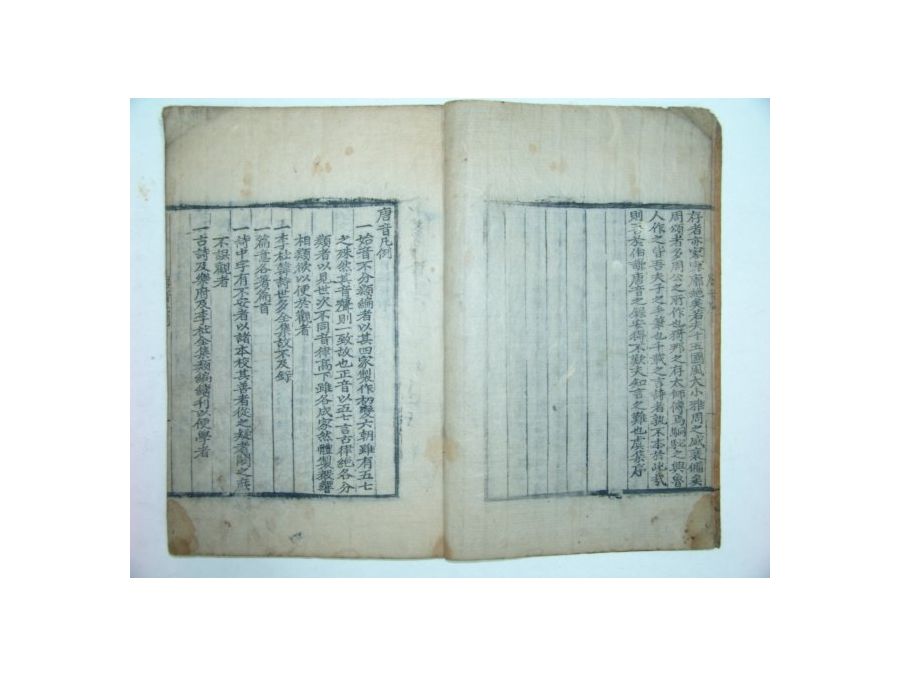 存者亦寡矣若夫十五國風大小雅周之盛衰備矣
周頌者多周公之所作也猗那之存太師傳焉駉駜之興魯
人作之皆吾夫子之手筆也千載之言詩者孰不本於此哉
則吾於伯謙唐音之錄安得不歎夫知言之難也虞集序
唐音凡例
一始音不分類編者以其四家製作初變六朝雖有五七
之殊然其音聲則一致故也正音以五七言古律絶各分
類者以見世次不同音律高下雖各成家然體製聲響
相類欲以便於觀者
一李杜韓詩世多全集故不及錄
一篇意各著篇首
一詩中字有不安者以諸本校其善者從之疑者闕之庶
不誤觀者
一古詩及樂府及李杜全集類編續刊以便學者